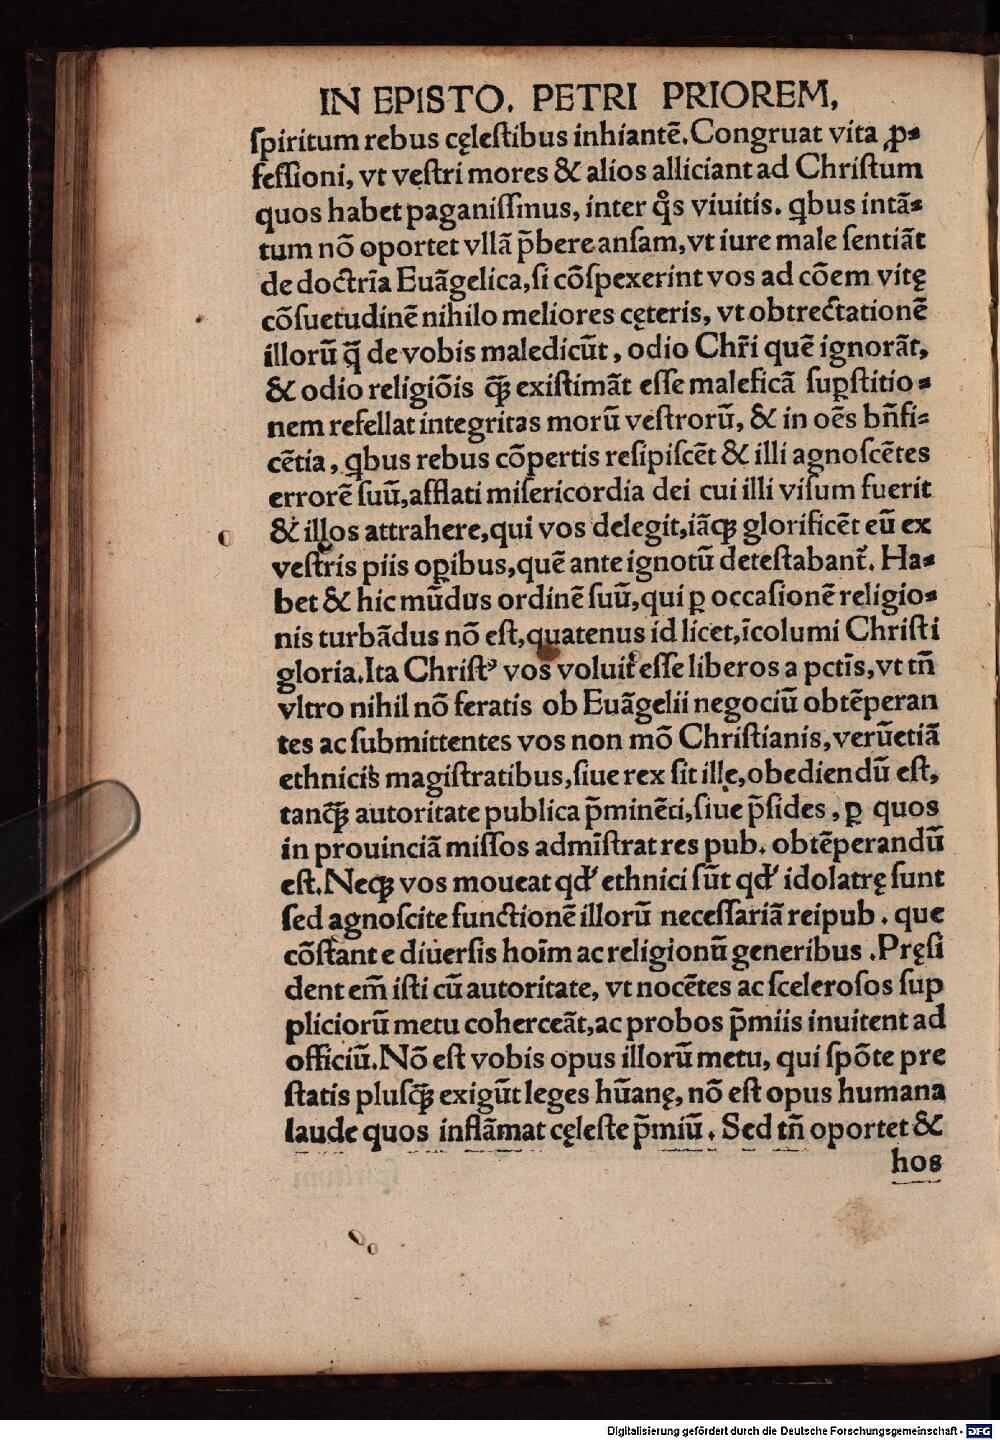 IN EPISTO. PETRI PRIOREM,
ſpiritum rebus cęleſtibus inhiantē. Congruat vita ꝓ⸗
feſſioni, vt veſtri mores & alios alliciant ad Chriſtum
quos habet paganiſſmus, inter qͦs viuitis. qbus intā⸗
tum nō oportet vllā p̄bere anſam, vt iure male ſentiāt
de doctrīa Euāgelica, ſi cōſpexerint vos ad cōem vitę
cōſuetudinē nihilo meliores cęteris, vt obtrectationē
illorū q̄ de vobis maledicūt, odio Chr̄i quē ignorāt,
& odio religiōis q̄ꝫ exiſtimāt eſſe maleficā ſuꝑſtitio⸗
nem refellat integritas morū veſtrorū, & in oēs bn̄fi⸗
cētia, qbus rebus cōpertis reſipiſcēt & illi agnoſcētes
errorē ſuū, afflati miſericordia dei cui illi viſum fuerit
& illos attrahere, qui vos delegit, iāqꝫ glorificēt eū ex
veſtris piis oꝑibus, quē ante ignotū deteſtabant᷑. Ha⸗
bet & hic mūdus ordinē ſuū, qui ꝑ occaſionē religio⸗
nis turbādus nō eſt, quatenus id licet, īcolumi Chriſti
gloria. Ita Chriſtꝰ vos voluit eſſe liberos a pctīs, vt tn̄
vltro nihil nō feratis ob Euāgelii negociū obtēperan
tes ac ſubmittentes vos non mō Chriſtianis, verūetiā
ethnicis magiſtratibus, ſiue rex ſit ille, obediendū eſt,
tanq̄ꝫ autoritate publica p̄minēti, ſiue p̄ſides, ꝑ quos
in prouinciā miſſos admīſtrat res pub. obtēperandū
eſt. Neqꝫ vos moueat qd' ethnici ſūt qd' idolatrę ſunt
ſed agnoſcite functionē illorū neceſſariā reipub. que
cōſtant e diuerſis hoīm ac religionū generibus. Pręſi
dent em̄ iſti cū autoritate, vt nocētes ac ſceleroſos ſup
pliciorū metu coherceāt, ac probos p̄miis inuitent ad
officiū. Nō eſt vobis opus illorū metu, qui ſpōte pre
ſtatis pluſq̄ꝫ exigūt leges hūanę, nō eſt opus humana
laude quos inflāmat cęleſte p̄miū. Sed tn̄ oportet &
hos
Digitalisierung gefördert durch die Deutsche Forschungsgemeinschaft - DFG